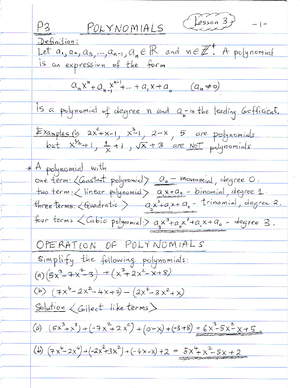 P3 POLYNOMIALS Lesson 3 -1-
Definition:
Let a₀, a₁, a₂, ..., aₙ₋₁, aₙ ∈ ℝ and n ∈ ℤ⁺. A polynomial
is an expression of the form
aₙxⁿ + aₙ₋₁xⁿ⁻¹ + ... + a₁x + a₀ (aₙ≠0)
is a polynomial of degree n and aₙ is the leading Coefficient.
Examples (1) 2x²+x-1, x³-1, 2-x, 5 are polynomials
but +1, √x + 3 are NOT polynomials
* A polynomial with
one term: <Constant polynomial> a₀ - monomial, degree 0.
two term: <linear polynomial> a₁x+a₀ - binomial, degree 1
three terms: <Quadratic > a₂x²+a₁x+a₀ - trinomial, degree 2.
four terms: <Cubic polynomial> a₃x³+a₂x²+a₁x+a₀ - degree 3.
OPERATION OF POLYNOMIALS
Simplify the following polynomials:
(a) (5x³-7x²-3) + (x³+2x²-x+8)
(b) (7x⁴-2x²-4x+3) - (2x⁴-3x²+x)
Solution <Collect like terms>
(a) (5x³+x³)+(-7x²+2x²)+(0-x)+(-3+8) = 6x³-5x²-x+5
(b) (7x⁴-2x⁴)+(-2x²+3x²)+(-4x-x)+2 = 5x⁴+x²-5x+2